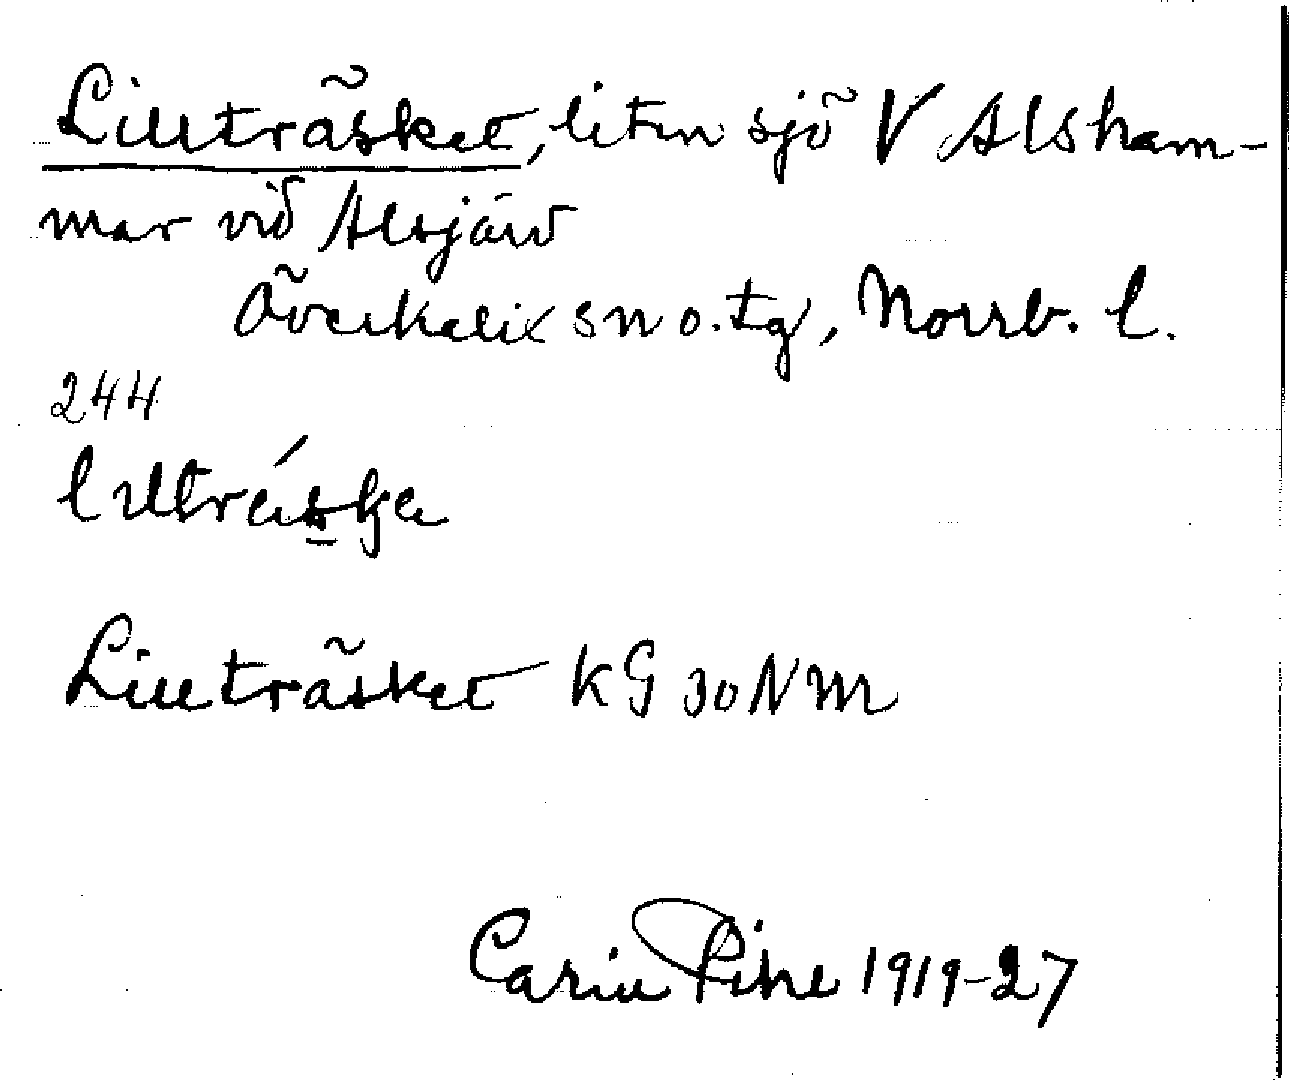 Lillträsket, liten sjö V Alsham-
mar vid Alsjärv
Överkalix sn o. tg, Norrb. l.
244
lilltráska
Lillträsket KG 30 NM
Carin Pihl 1919-27